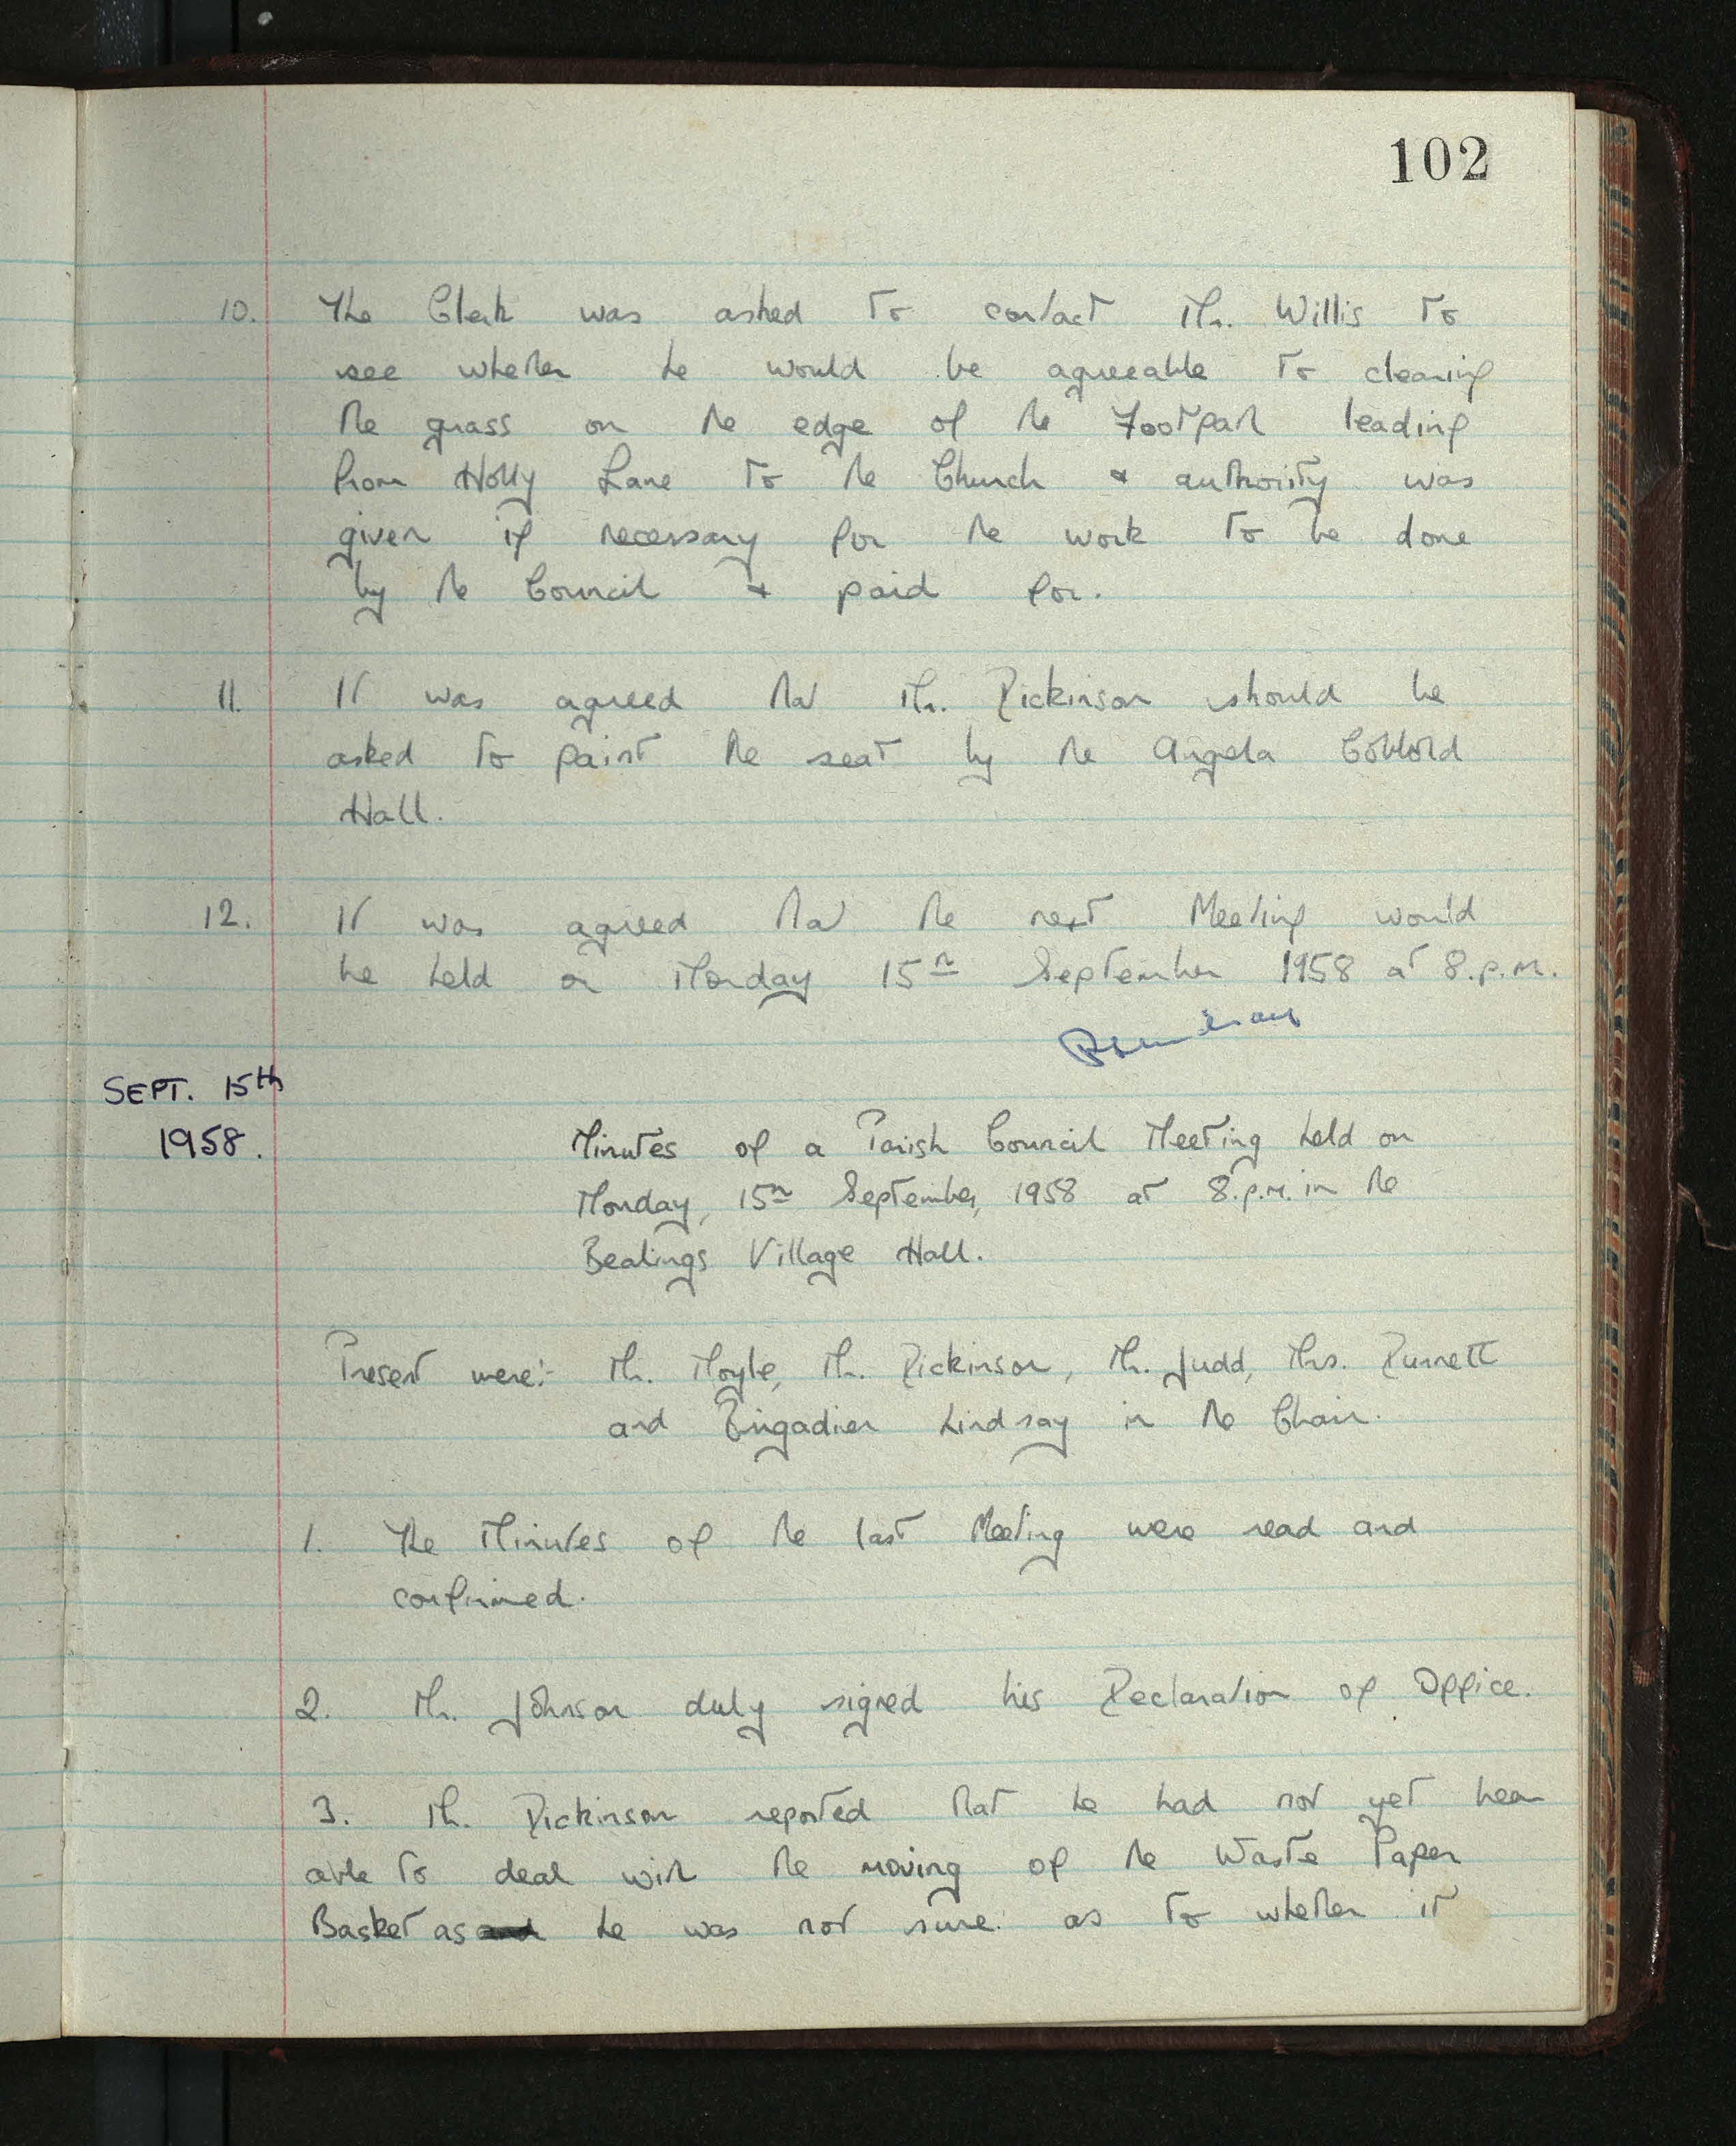 102
10. The Clerk was asked to contact Mr. Willis to
see whether he would be agreeable to clearing
the grass on the edge of the Footpath leading
from Holly Lane to the Church & authority was
given if necessary for the work to be done
by the Council & paid for.
11. It was agreed that Mr. Dickinson should be
asked to paint the seat by the Angela Cobbold
Hall.
12. It was agreed that the next Meeting would
be held on Monday 15th September 1958 at 8.p.m.
SEPT. 15th
1958.
Minutes of a Parish Council Meeting held on
Monday, 15th September, 1958 at 8.p.m. in the
Bealings Village Hall.
Present were:- Mr. Moyle, Mr. Dickinson, Mr. Judd, Mrs. Durrett
and Brigadier Lindsay in the Chair.
1. The Minutes of the last Meeting were read and
confirmed.
2. Mr. Johnson duly signed his Declaration of Office.
3. Mr. Dickinson reported that he had not yet been
able to deal with the moving of the Waste Paper
Basket as he was not sure as to whether it